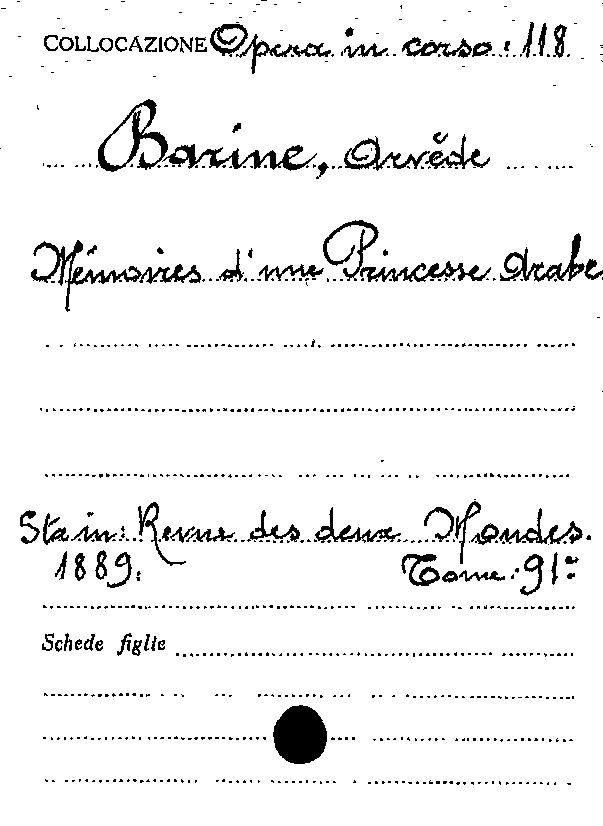 COLLOCAZIONE Opera in corso: 118
Barine, Arvède
Mémoires d'une Princesse Arabe
Sta in: Revue des deux Mondes.
1889. Tome: 91º
Schede figlie